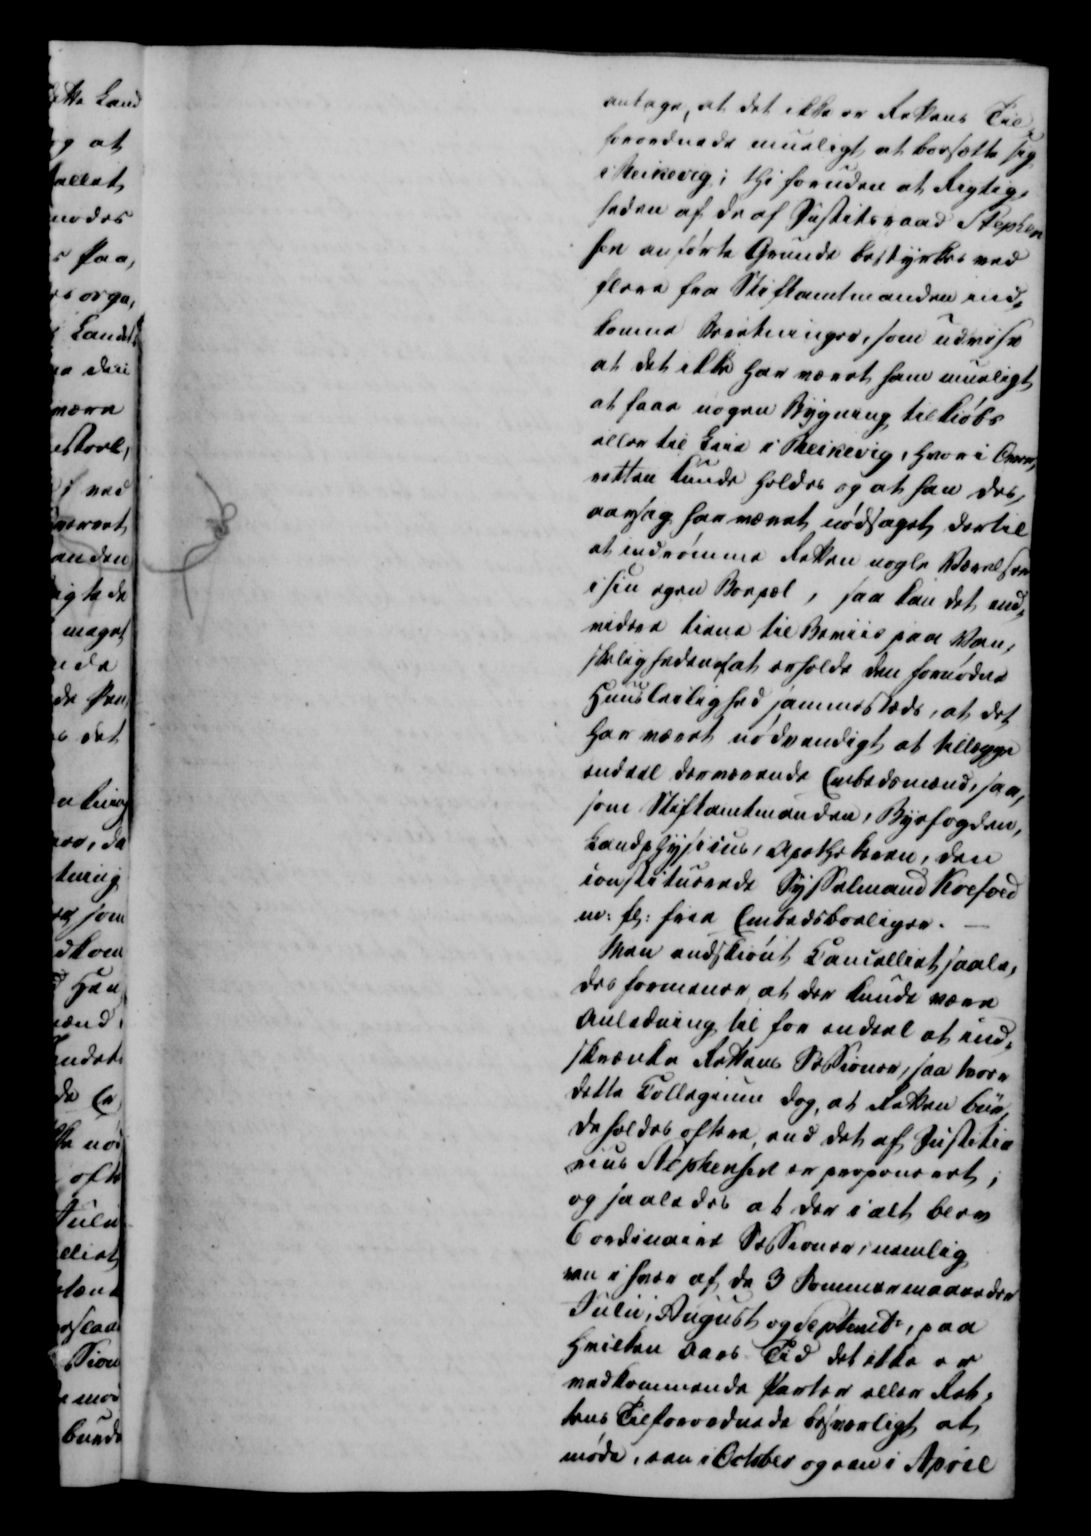 antage, at det ikke er Rettens Til-
forordnede mueligt at bosætte sig
i Reikevig; thi foruden at Rigtig-
heden af de af Justitsraad Stephen
sen anførte Grunde bestyrkes ved
flere fra Stiftamtmanden ind-
komne Beretninger, som udviise
at det ikke har været ham mueligt
at faae nogen Bygning til Kiøbs
eller til Leie i Reikevig, hvor i Over-
retten kunde holdes og at han des-
aarsag har været nødsaget dertil
at indrømme Retten nogle Værelser
i sin egen Boepæl, saa kan det end-
videre tiene til Beviis paa Van-
skeligheden af at erholde den fornødne
Huusleilighed sammesteds, at det
har været nødvendigt at tillægge
endeel derværende Embedsmænd, saa-
som Stiftamtmanden, Byefogden,
Landphysicus, Apothekeren, den
constituerede Sysselmand Koefoed
m: fl: frie Embedsboeliger. —
Men endskiønt Cancelliet saale-
des formener, at der kunde være
Anledning til for endeel at ind-
skrænke Rettens Sessioner, saa troer
dette Collegium dog, at Retten bur-
de holdes oftere, end det af Justitia
rius Stephensen er proponeret;
og saaledes at der i alt blev
6 ordinaire Sessioner, nemlig
een i hver af de 3 Sommermaaneder
Julii, August og Septembr, paa
hvilken Aars Tid det ikke er
vedkommende Parter eller Ret-
tens Tilforordnede besværligt at
møde, een i October og een i April